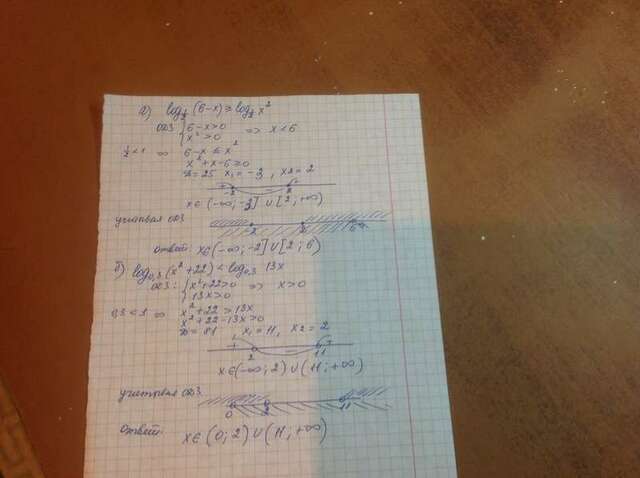 а) log½ (6-x) ≥ log½ x²
ОДЗ { 6-x>0 ⇒ x<6
x²>0
½<1 ⇒ 6-x ≤ x²
x²+x-6≥0
D=25 x₁=-3, x₂=2
+ - +
-3 2
x∈(-∞;-3]∪[2;+∞)
учитывая ОДЗ
-2
ответ: x∈(-∞;-2]∪[2;6)
б) log₀,₃ (x²+22) < log₀,₃ 13x
ОДЗ: { x²+22>0 ⇒ x>0
13x>0
0,3<1 ⇒ x²+22>13x
x²+22-13x>0
D=81 x₁=11, x₂=2
+ - +
2 11
x∈(-∞;2)∪(11;+∞)
учитывая ОДЗ.
0 2 11
ответ: x∈(0;2)∪(11;+∞)